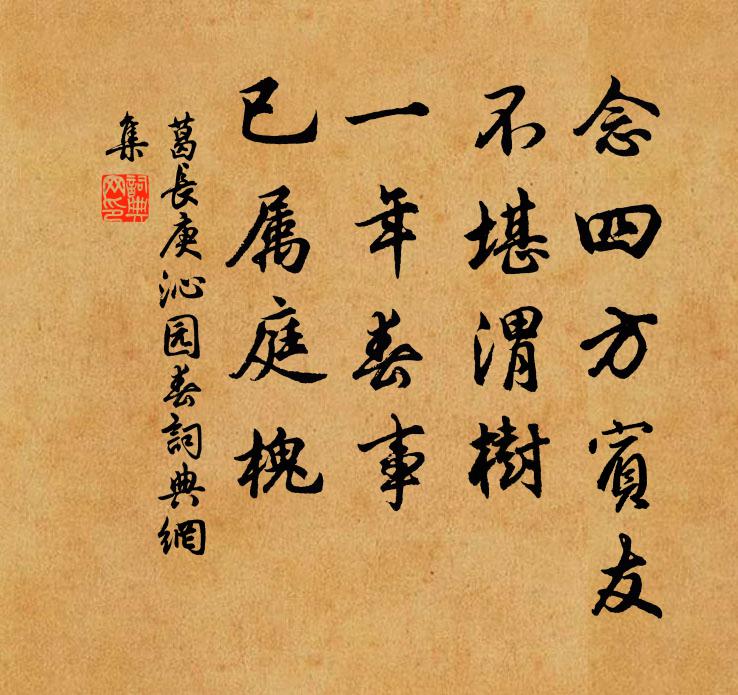 念四方賓友
不堪渭樹
一年春事
已属庭槐
葛長庚沁园春詞典網
集
詞典
网印